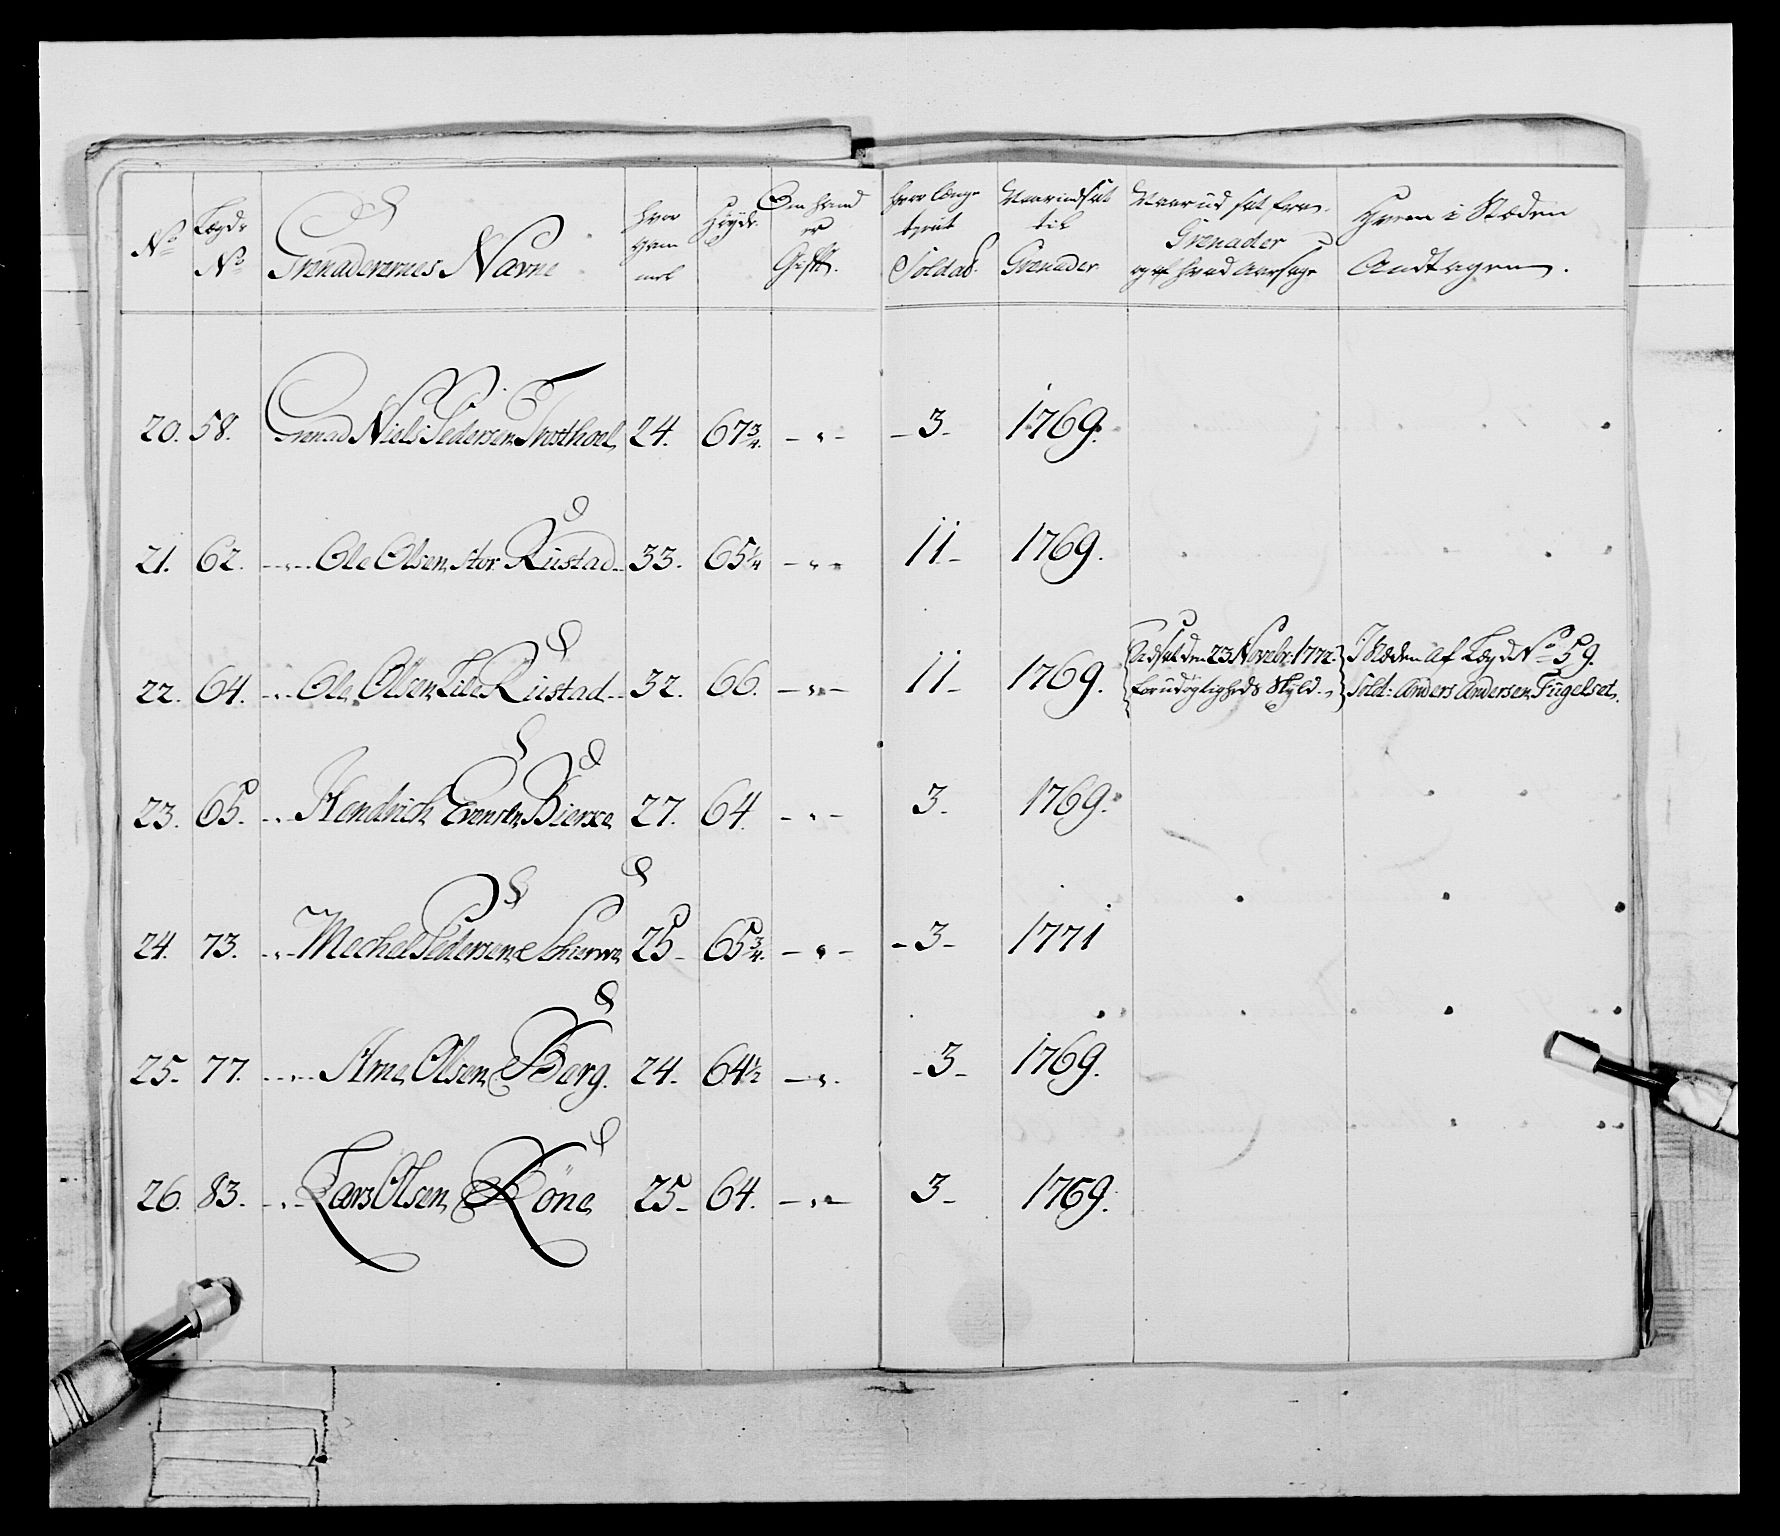 No
Lægds No
Grenaderernes Navne
hvor gam mel
Høyde
Om hand er Gifft.
hvor længe tient Soldat
Naar indsat til Grenader
Naar ud sat fra Grenader og af hvad Aarsage
Hvem i Stæden Andtagen.
20. 58. Grenad Niels Pedersen 24. 67 3/4. - " - - 3 - 1769.
21. 62. - " - Ole Olsen stor Rustad - 33. 65 1/4 - " - 11 - 1769.
22. 64. - " - Ole Olsen Lile Rustad - 32. 66. - " - 11 - 1769. Udsat den 23 Novebr: 1772. I Stæden af Lægd No 59.
for udögtigheds Skyld - Sold: Anders Andersen Fugelset.
23. 65. - " - Hendrich Evensen 27. 64. - " - 3 - 1769.
24. 73. - " - Mechel Pedersen 25 - 65 3/4. - " - - 3 - 1771
25 - 77. - " - Arne Olsen Berg. 24. 64 1/2 - " - - 3 - 1769.
26. 83. - " - Lars Olsen Köne 25 - 64. - " - 3 - 1769.